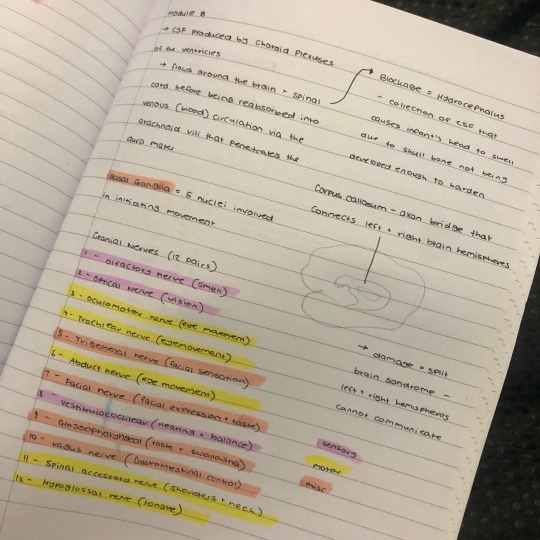 Module 8
→ CSF produced by Choroid Plexuses
of the ventricles
→ flows around the brain + spinal
cord before being reabsorbed into
venous (blood) circulation via the
arachnoid villi that penetrates the
dura mater
Blockage = Hydrocephalus
- collection of CSF that
causes infant's head to swell
due to skull bone not being
developed enough to harden
Basal Ganglia = 5 nuclei involved
in initiating movement
Corpus callosum - axon bridge that
connects left + right brain hemispheres
→ damage = split
brain syndrome -
left + right hemispheres
cannot communicate
Cranial Nerves (12 pairs)
1 - olfactory nerve (smell)
2 - optical nerve (vision)
3 - oculomotor nerve (eye movement)
4 - Trochlear nerve (eyemovement)
5 - Trigemenal nerve (facial sensation)
6 - Abduct nerve (eye movement)
7 - Facial nerve (facial expression + taste)
8 - (Hearing + balance)
9 - (taste + swallowing)
10 - vagus nerve (Gastrointestinal control)
11 - Spinal accessory nerve (shoulders + neck)
12 - Hypoglossal nerve (tongue)
sensory
motor
misc